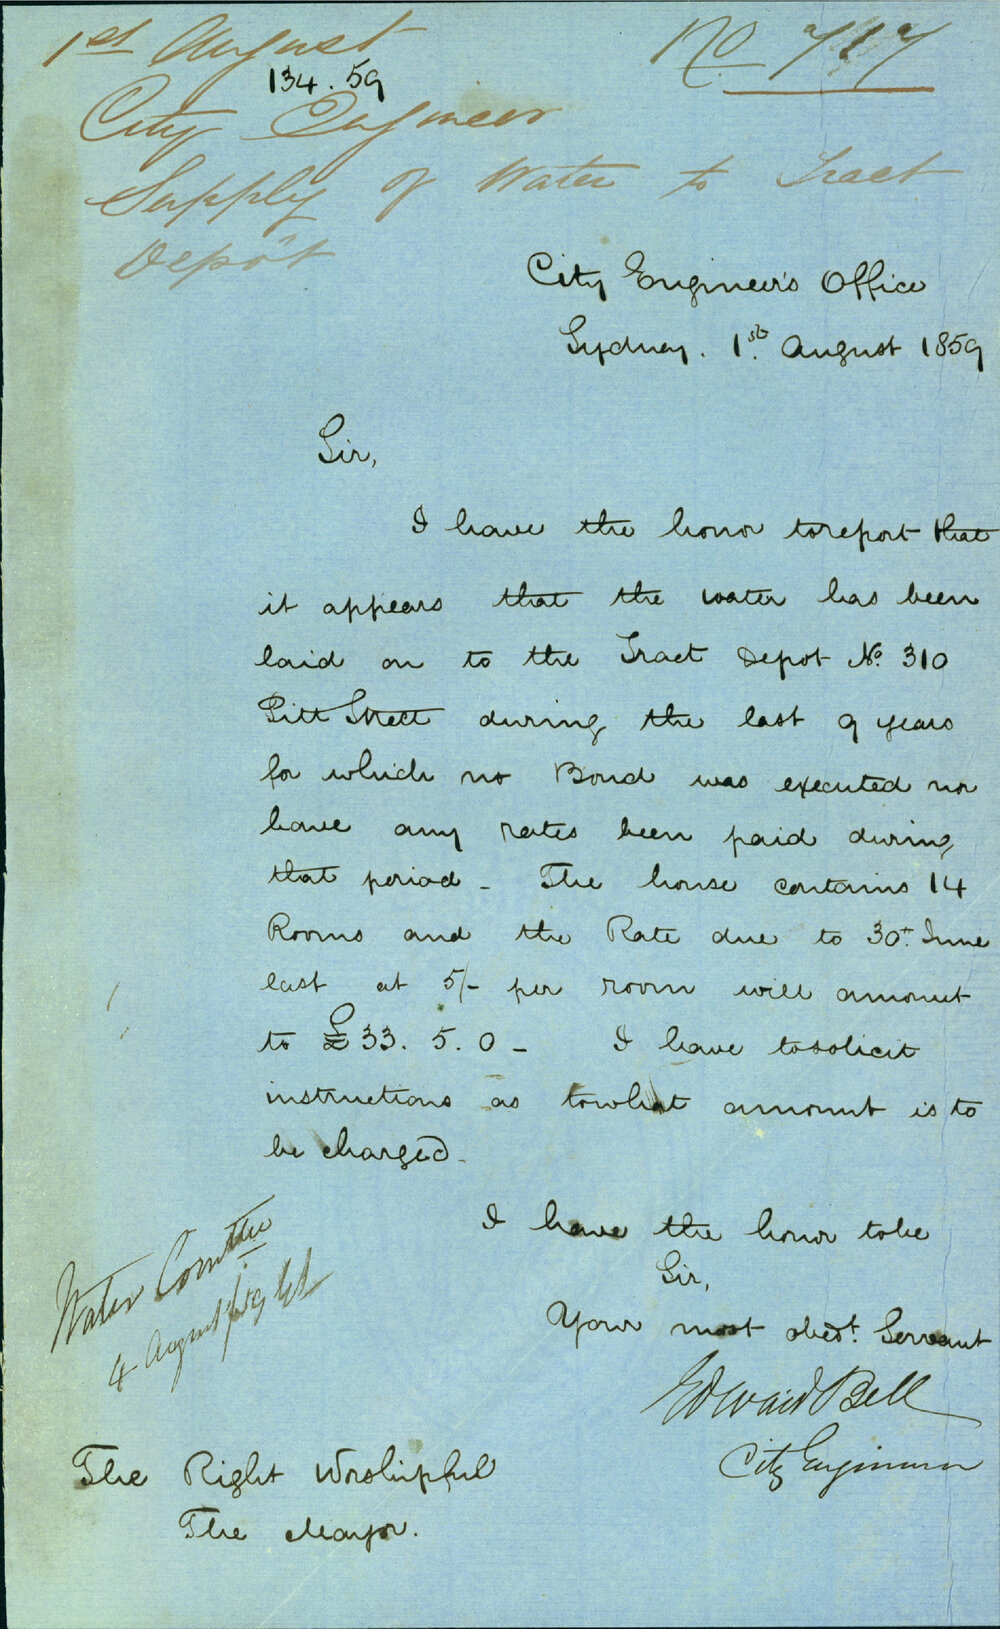 1st August
No 717
134.59
City Engineer
Supply of Water to Tract
Depôt
City Engineer's Office
Sydney. 1st. August 1859
Sir,
I have the honor to report that
it appears that the water has been
laid on to the Tract Depot No. 310
Pitt Street during the last 9 years
for which no Bond was executed nor
have any rates been paid during
that period - The house contains 14
Rooms and the Rate due to 30th June
last at 5/- per room will amount
to £33. 5. 0 - I have to solicit
instructions as to what amount is to
be charged -
I have the honor to be
Sir,
Your most obedt. Servant
Edward Bell
City Engineer
Water Comttee
4 August /59
The Right Worshipful
The Mayor.